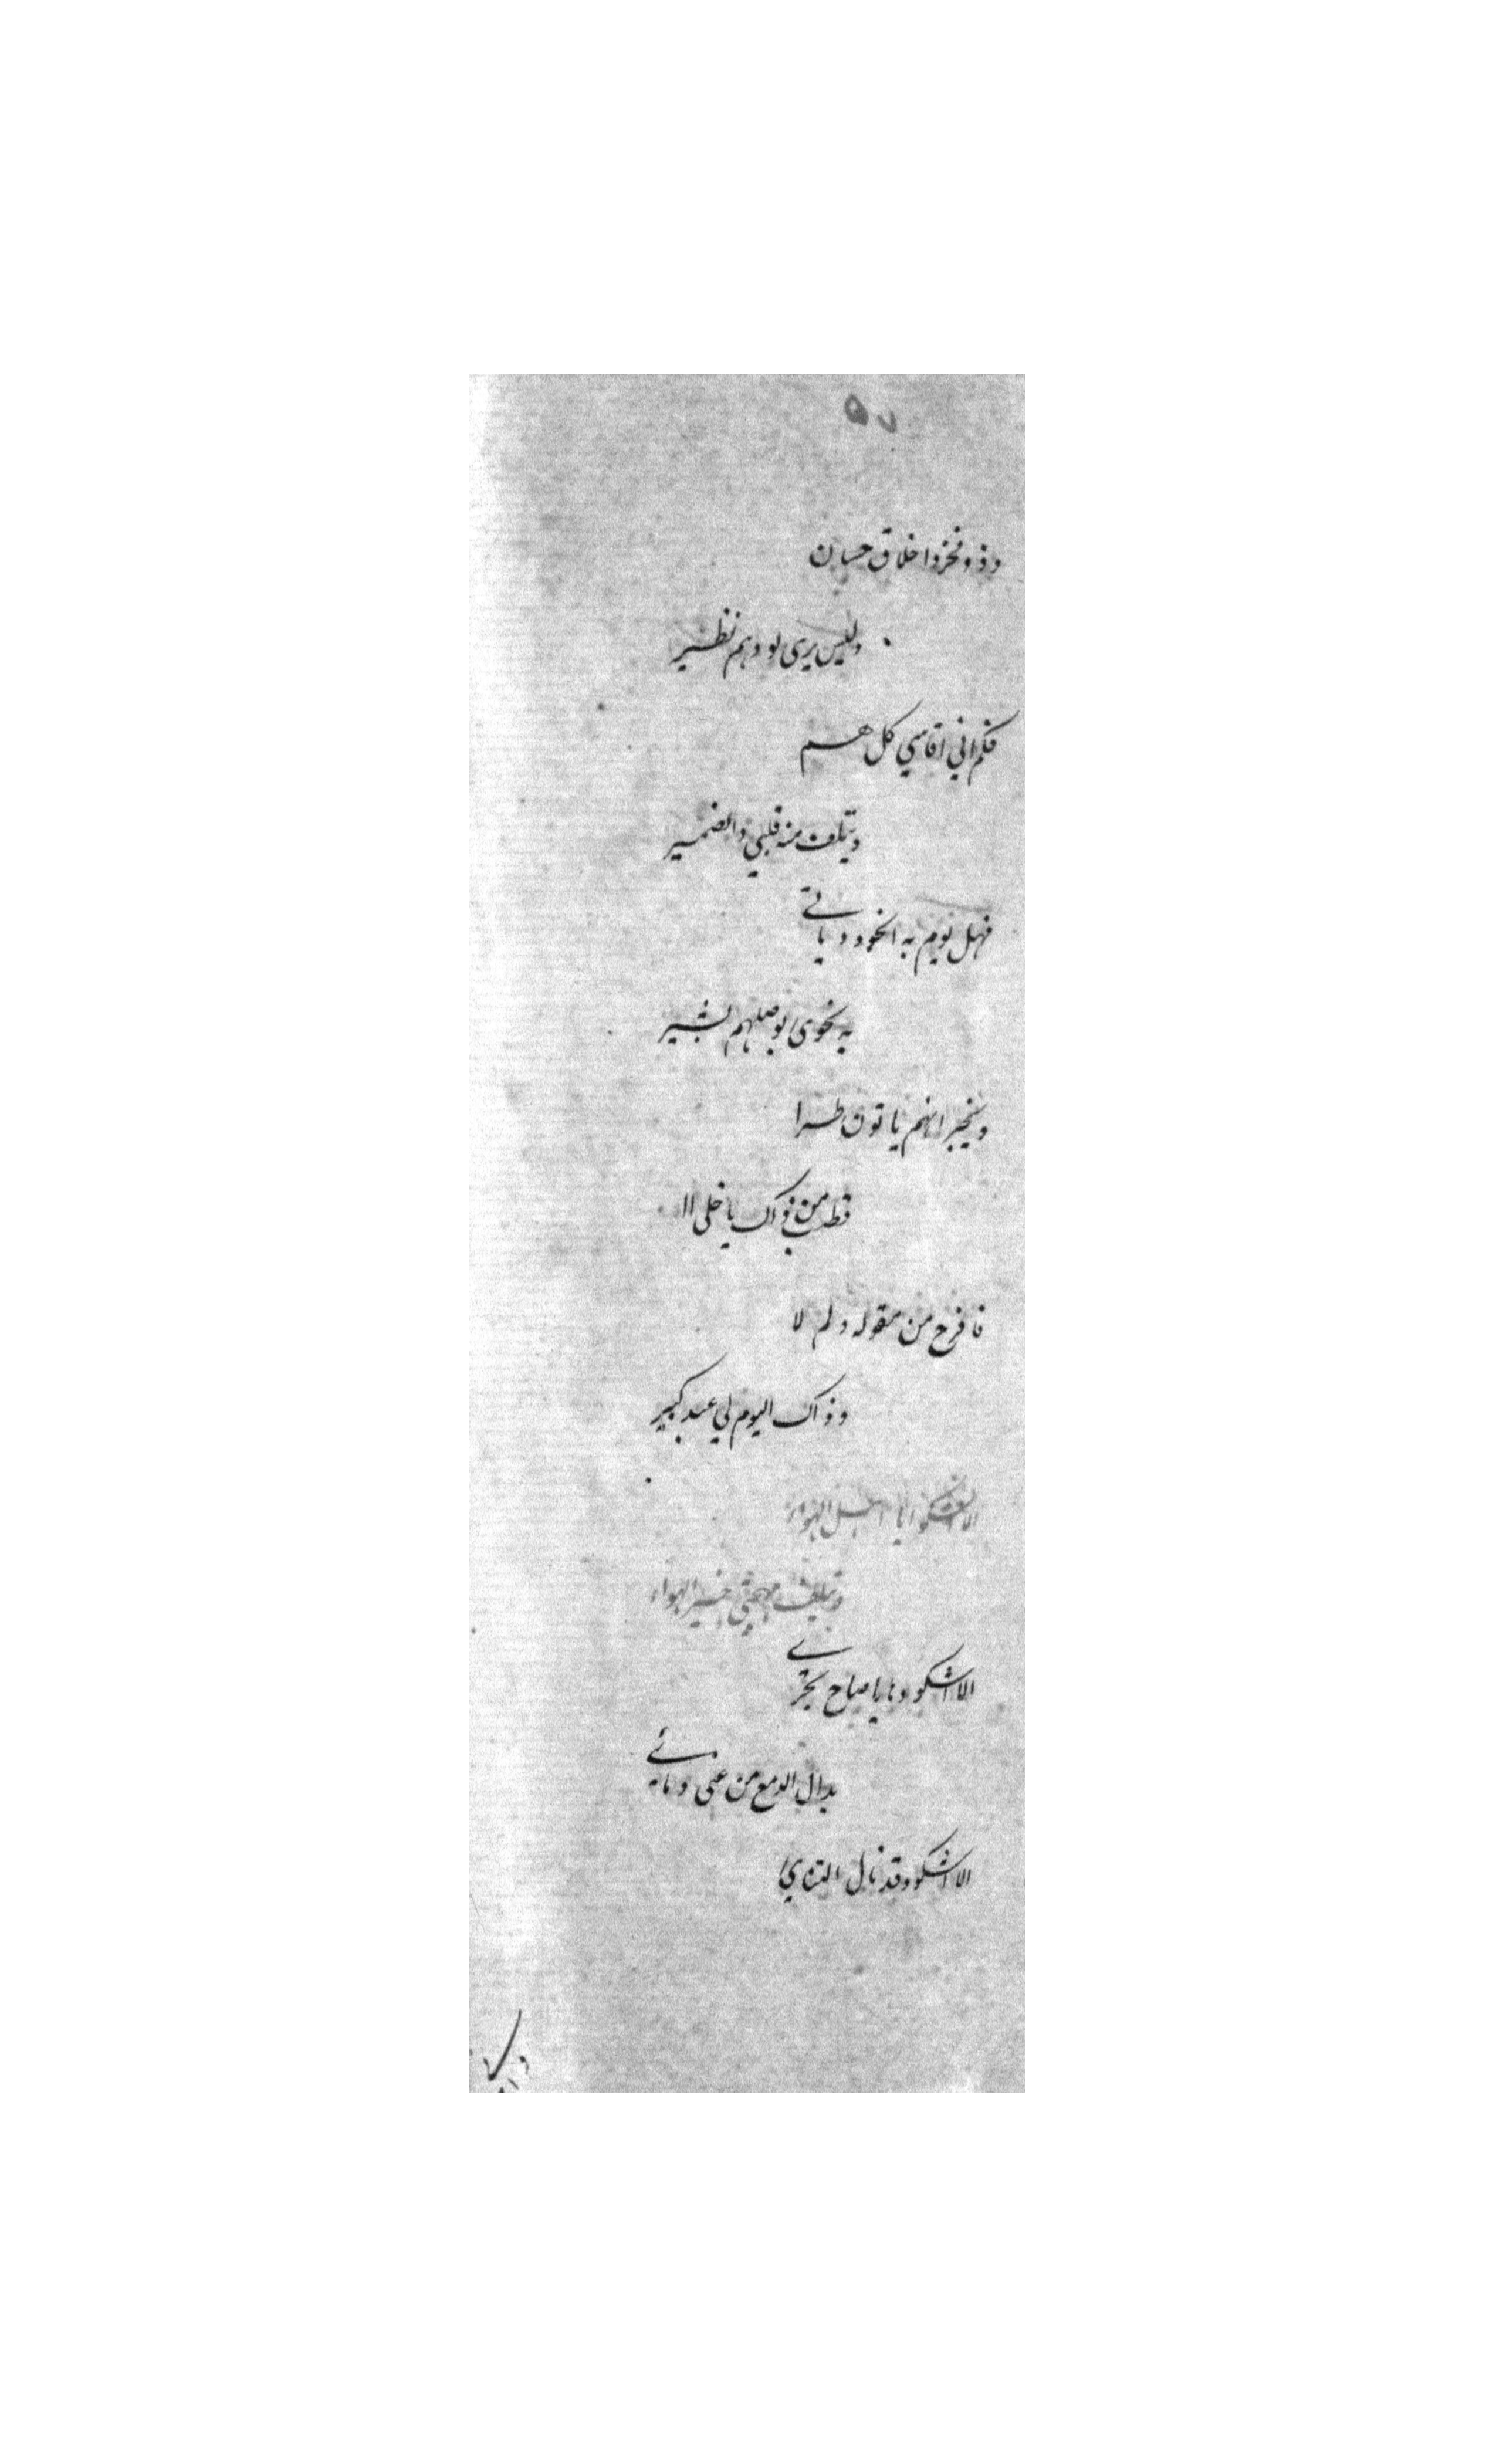 ٥٧
وذو فخر واخلاق حسان
وليس يرى بودهم نظير
فكم اني اقاسي كل هم
ويتلف منه قلبي والضمير
فهل يوم به الخود وياتي
به نحوى بوصلهم بشير
ويخبر انهم ياتون طرا
فطب من ذاك يا خلي
فافرح من مقوله ولم لا
وذاك اليوم لي عيد كبير
الا اشكو ايا اهل الهواء
وتلف مهجتي الهواء
الا اشكو وها يا صاح تجري
بدال الدمع من عيني دمائي
الا اشكو وقد نال التنائي